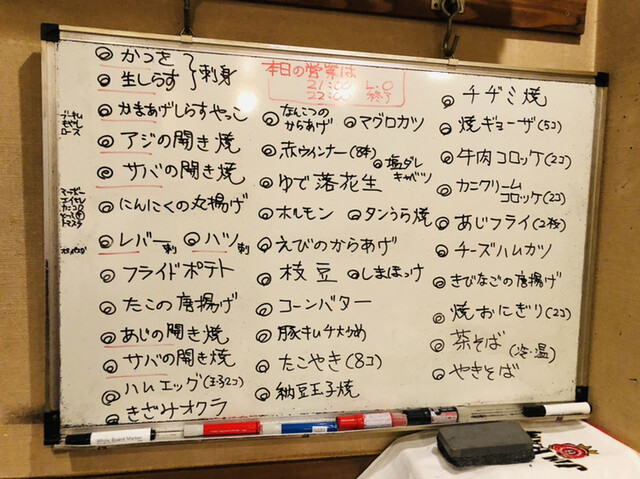 かつを
生しらす
刺身
かまあげしらすやっこ
アジの開き焼
サバの開き焼
にんにくの丸揚げ
レバー刺
ハツ刺
フライドポテト
たこの唐揚げ
あじの開き焼
サバの開き焼
ハムエッグ(玉子2コ)
きざみオクラ
本日の営業は
21:00 L.O
22:00 終了
なんこつの
からあげ
マグロカツ
赤ウインナー(8本)
塩ダレ
キャベツ
ゆで落花生
ホルモン
タンうら焼
えびのからあげ
枝豆
しまほっけ
コーンバター
豚キムチ炒め
たこやき(8コ)
納豆玉子焼
チヂミ焼
焼ギョーザ(5コ)
牛肉コロッケ(2コ)
カニクリーム
コロッケ(2コ)
あじフライ(2枚)
チーズハムカツ
きびなごの唐揚げ
焼おにぎり(2コ)
茶そば(冷・温)
やきそば
White Board Marker